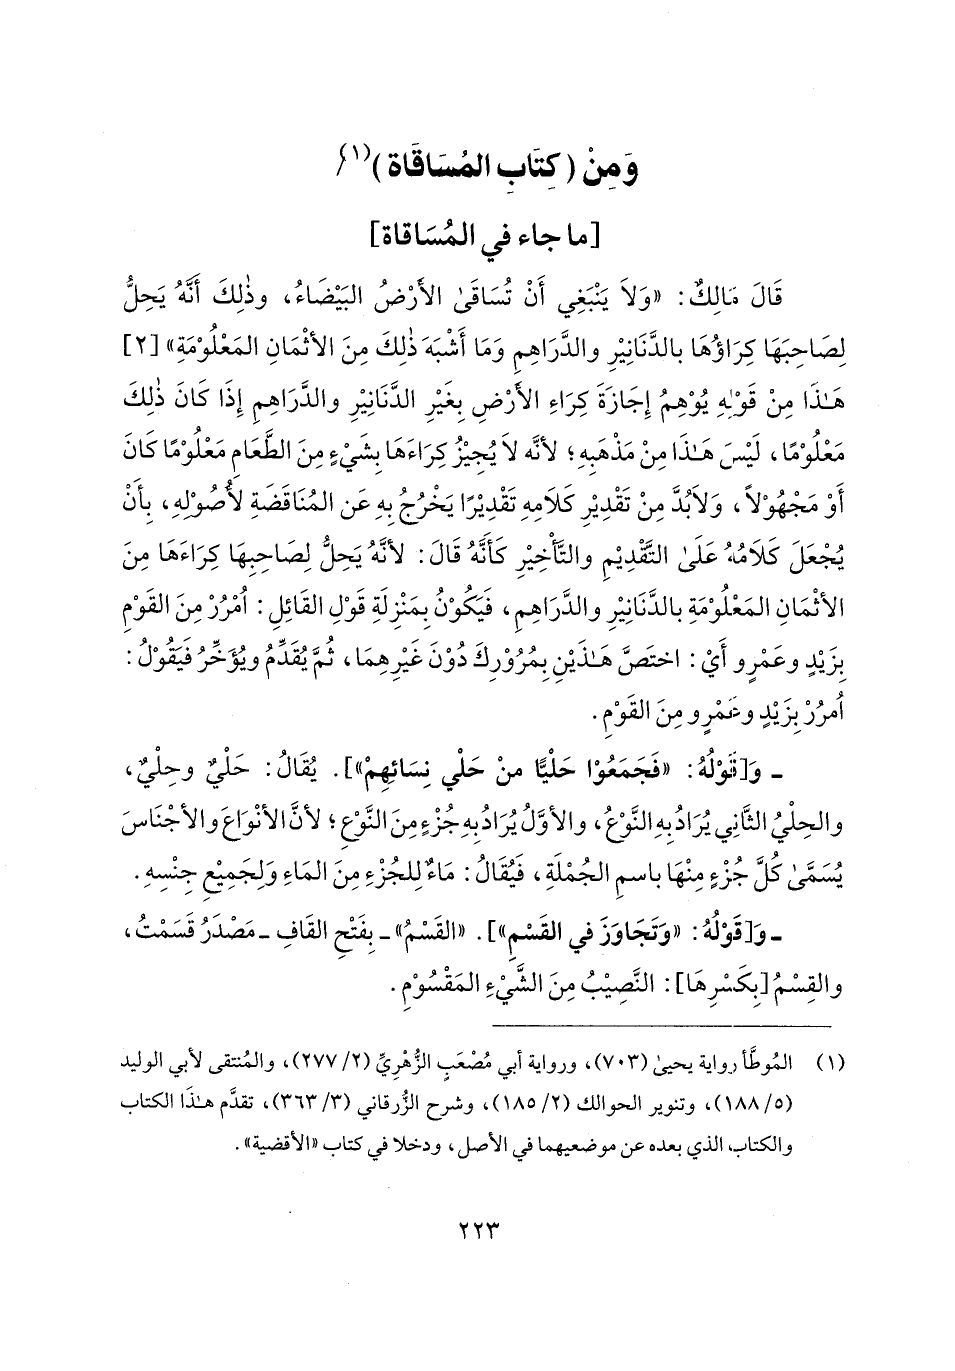 وَمِنْ (كِتَابِ المُسَاقَاة)(١)
[ما جاء في المُسَاقاة]
قَالَ مَالِكٌ: «وَلاَ يَنْبَغِي أَنْ تُسَاقَىٰ الأَرْضُ البَيْضَاءُ، وذٰلِكَ أَنَّهُ يَحِلُّ
لِصَاحِبَهَا كِرَاؤُهَا بالدَّنَانِيْرِ والدَّرَاهِمِ وَمَا أَشْبَهَ ذٰلِكَ مِنَ الأَثْمَانِ المَعْلُوْمَةِ» [٢]
هَـٰذَا مِنْ قَوْلِهِ يُوْهِمُ إِجَازَةَ كِرَاءِ الأَرْضِ بِغَيْرِ الدَّنَانِيْرِ والدَّرَاهِمِ إِذَا كَانَ ذٰلِكَ
مَعْلُومًا، لَيْسَ هَـٰذَا مِنْ مَذْهَبِهِ؛ لأنَّه لاَ يُجِيْزُ كِرَاءَهَا بِشَيْءٍ مِنَ الطَّعَامِ مَعْلُومًا كَانَ
أَوْ مَجْهُوْلاً، وَلاَبُدَّ مِنْ تَقْدِيْرِ كَلاَمِهِ تَقْدِيْرًا يَخْرُجُ بِهِ عَنِ المُنَاقَضَةِ لأُصُوْلِهِ، بِأَنْ
يُجْعَلَ كَلاَمُهُ عَلَىٰ التَّقْدِيْمِ والتَّأْخِيْرِ كَأَنَّهُ قَالَ: لأنَّهُ يَحِلُّ لِصَاحِبِهَا كِرَاءَهَا مِنَ
الأَثْمَانِ المَعْلُوْمَةِ بالدَّنَانِيْرِ والدَّرَاهِمِ، فَيَكُوْنُ بِمَنْزِلَةِ قَوْلِ القَائِلِ: اُمْرُرْ مِنَ القَوْمِ
بِزَيْدٍ وعَمْرٍو أَيْ: اختَصَّ هَـٰذَيْنِ بِمُرُوْرِكَ دُوْنَ غَيْرِهِمَا، ثُمَّ يُقَدِّمُ ويُؤَخِّرُ فَيَقُوْلُ:
اُمرُرْ بِزَيْدٍ وعَمْرٍو مِنَ القَوْمِ.
ـ وَ[قَوْلُهُ: «فَجَمَعُوْا حَلْيًا منْ حَلْيِ نِسَائِهِمْ»]. يُقَالُ: حَلْيٌ وحِلْيٌ،
والحِلْيُ الثَّانِي يُرَادُ بِهِ النَّوْعُ، والأوَّلُ يُرَادُ بِهِ جُزْءٍ مِنَ النَّوْعِ؛ لأنَّ الأنْوَاعَ والأجْنَاسَ
يُسَمَّىٰ كُلَّ جُزْءٍ مِنْهَا باسمِ الجُمْلَةِ، فَيُقَالُ: مَاءٌ لِلجُزْءِ مِنَ المَاءِ وَلِجَمِيْعِ جِنْسِهِ.
ـ وَ[قَوْلُهُ: «وَتَجَاوَزَ في القَسْمِ»]. «القَسْمُ» ـ بِفَتْحِ القَافِ ـ مَصْدَرُ قَسَمْتُ،
والقِسْمُ [بِكَسْرِهَا]: النَّصِيْبُ مِنَ الشَّيْءِ المَقْسُوْمِ.
(١) المُوطَّأ رواية يحيىٰ (٧٠٣)، ورواية أبي مُصْعَبٍ الزُّهْرِيِّ (٢/ ٢٧٧)، والمُنتقى لأبي الوليد
(٥/ ١٨٨)، وتنوير الحوالك (٢/ ١٨٥)، وشرح الزُّرقاني (٣/ ٣٦٣)، تقدَّم هـٰذَا الكتاب
والكتاب الذي بعده عن موضعيهما في الأصل، ودخلا في كتاب «الأقضية».
٢٢٣